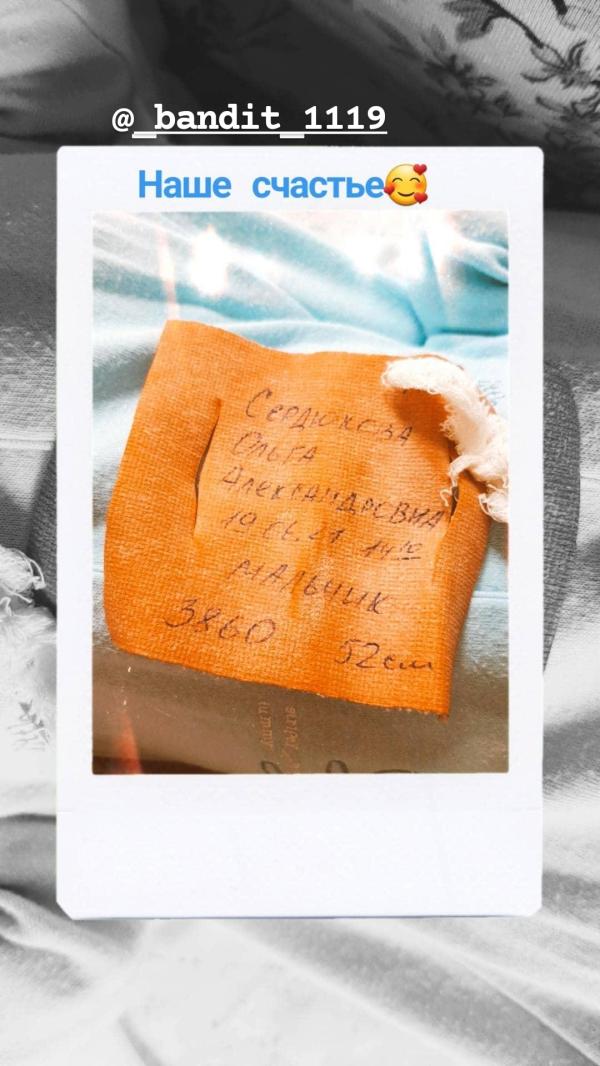 @_bandit_1119
Наше счастье🥰
Сердюкова
Ольга
Александровна
14 10
мальчик
3860 52см